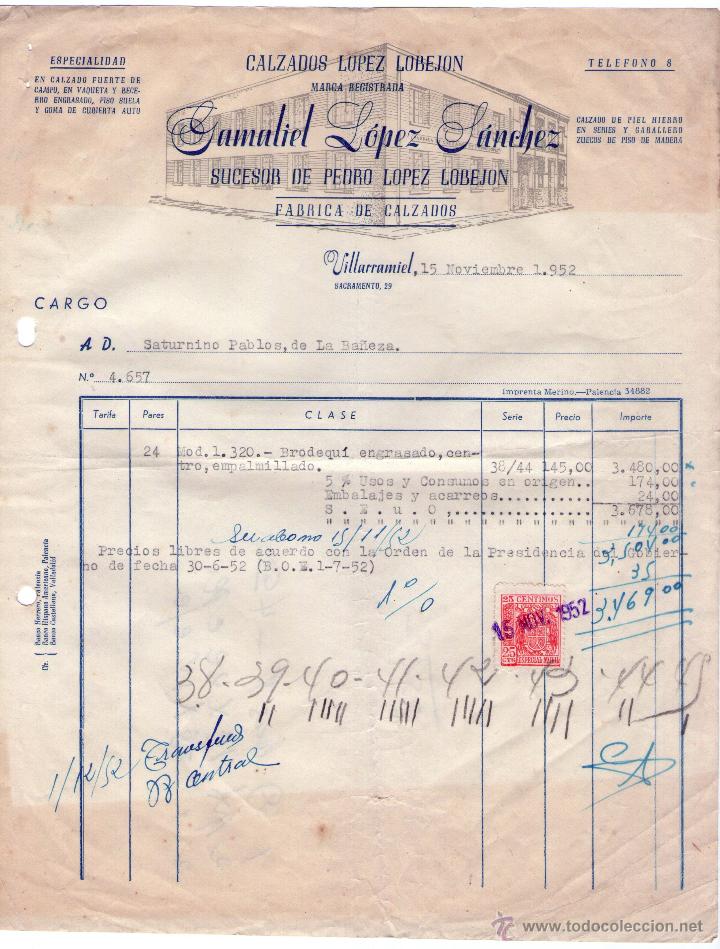 ESPECIALIDAD
EN CALZADO FUERTE DE
CAMPO, EN VAQUETA Y BECE-
RRO ENGRASADO, PISO SUELA
Y GOMA DE CUBIERTA AUTO
CALZADOS LOPEZ LOBEJON
MARCA REGISTRADA
Gamaliel López Sánchez
SUCESOR DE PEDRO LOPEZ LOBEJON
FABRICA DE CALZADOS
TELEFONO 8
CALZADO DE PIEL HIERRO
EN SERIES Y CABALLERO
ZUECOS DE PISO DE MADERA
Villarramiel, 15 Noviembre 1.952
SACRAMENTO, 29
CARGO
A D. Saturnino Pablos, de La Bañeza.
N.º 4.657
Imprenta Merino.—Palencia 34882
Tarifa Pares CLASE Serie Precio Importe
24 Mod. 1.320.- Brodequí engrasado, cen-
tro, empalmillado. 38/44 145,00 3.480,00
5 % Usos y Consumos en origen.. 174,00
Embalajes y acarreos........... 24,00
S. E. u O,............... 3.678,00
15/11/52
174,00
Precios libres de acuerdo con la Orden de la Presidencia del Gobier-
no de fecha 30-6-52 (B.O.E. 1-7-52)
3,504,00
35
3.469,00
Banco Herrero, Palencia
Banco Hispano Americano, Palencia
Banco Castellano, Valladolid
25 CENTIMOS
15 NOV. 1952
25 CTS
ESPECIAL MOVIL
38-39-40-41-42-43-44-45
1/12/52
Central
www.todocoleccion.net